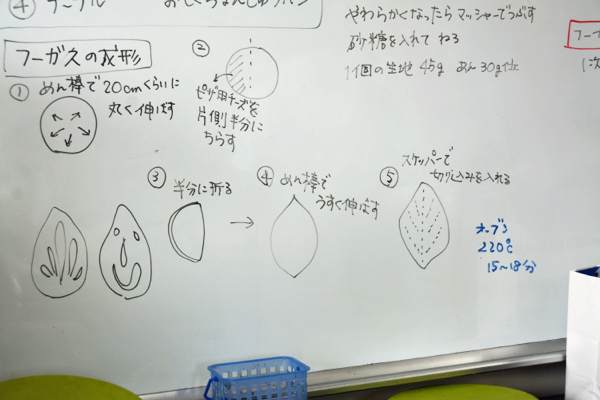 ④
やわらかくなったらマッシャーでつぶす
砂糖を入れて ねる
1個の生地 45g あん 30g
フーガスの成形
① めん棒で20cmくらいに
丸く伸ばす
②
ピザ用チーズを
片側半分に
ちらす
③ 半分に折る
④ めん棒で
うすく伸ばす
⑤ スケッパーで
切り込みを入れる
オーブン
220℃
15〜18分